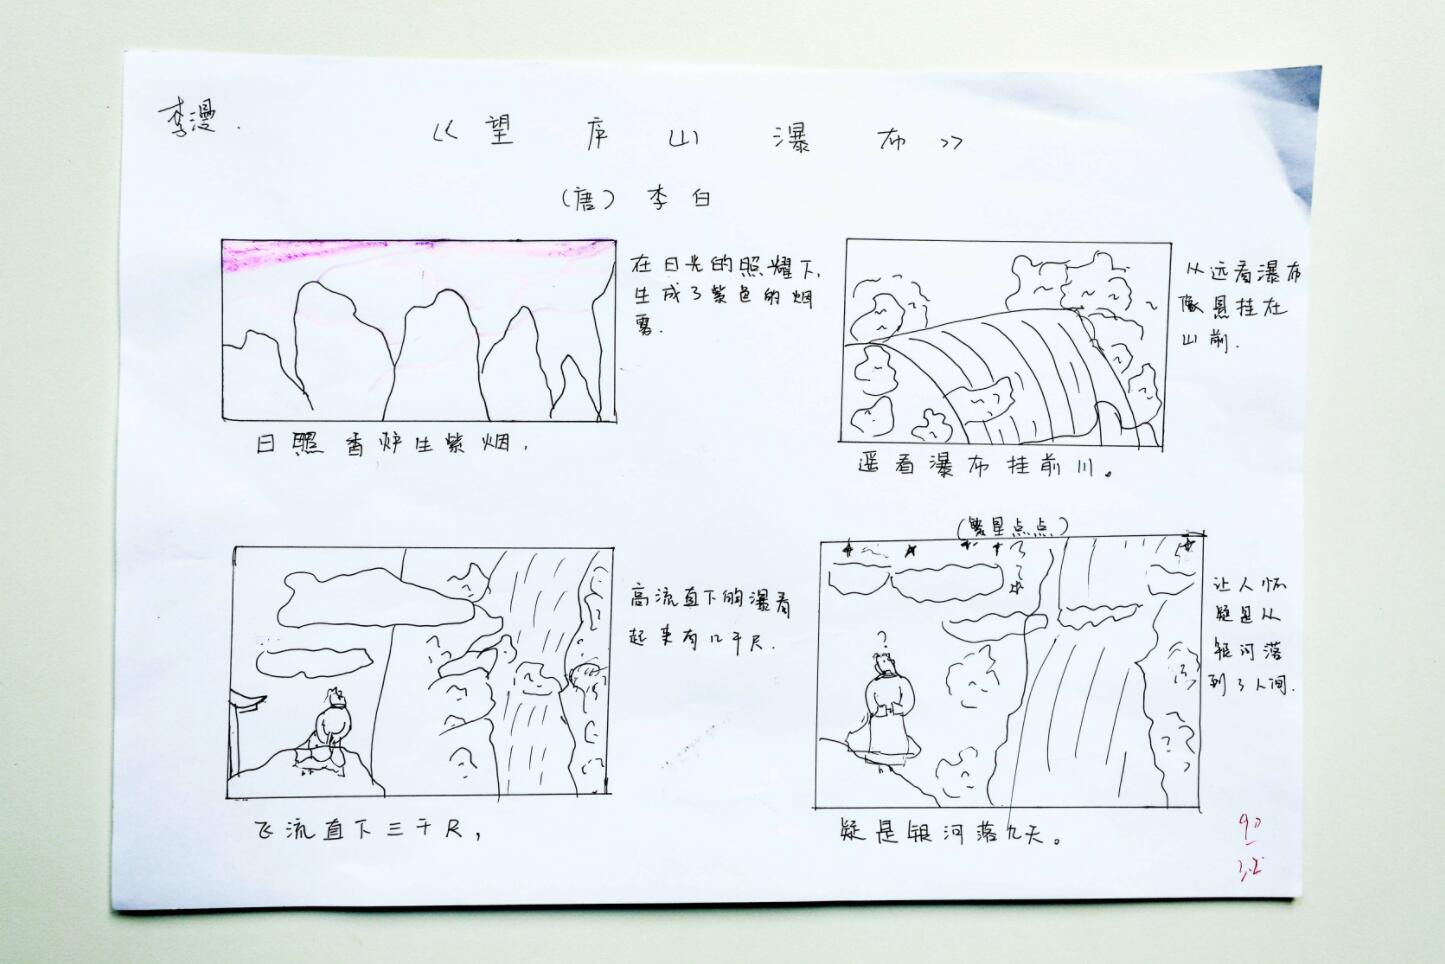 李漫.
《望庐山瀑布》
(唐) 李白
在日光的照耀下,
生成了紫色的烟
雾.
日照香炉生紫烟,
从远看瀑布
像悬挂在
山前.
遥看瀑布挂前川。
高流直下的瀑看
起来有几千尺.
飞流直下三千尺,
(繁星点点)
?
让人怀
疑是从
银河落
到了人间.
疑是银河落九天。
90